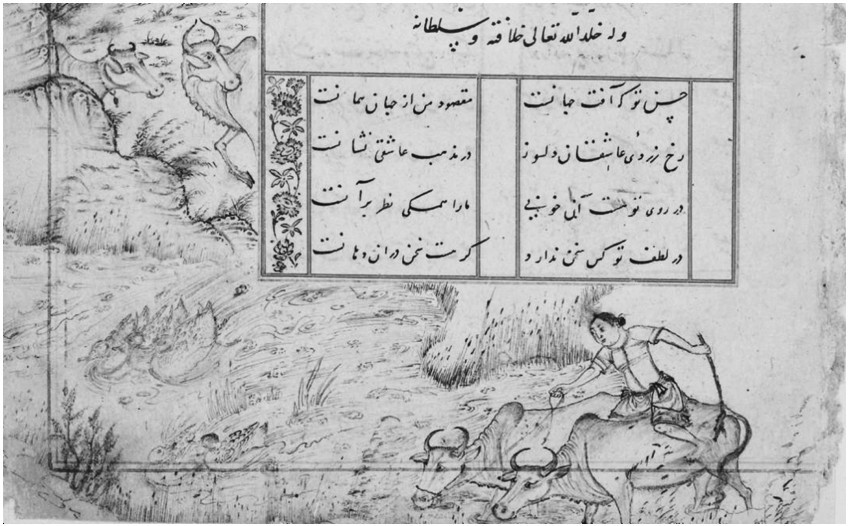 وله خلد الله تعالی خلافته و سلطانه
حسن تو که آفت جهانست مقصود من از جهان همانست
رخ زردی عاشقان دلسوز در مذهب عاشقی نشانست
در روی تو هست خوبی ما را همگی نظر بر آنست
در لطف تو کس سخن ندارد گر هست سخن در آن دهانست